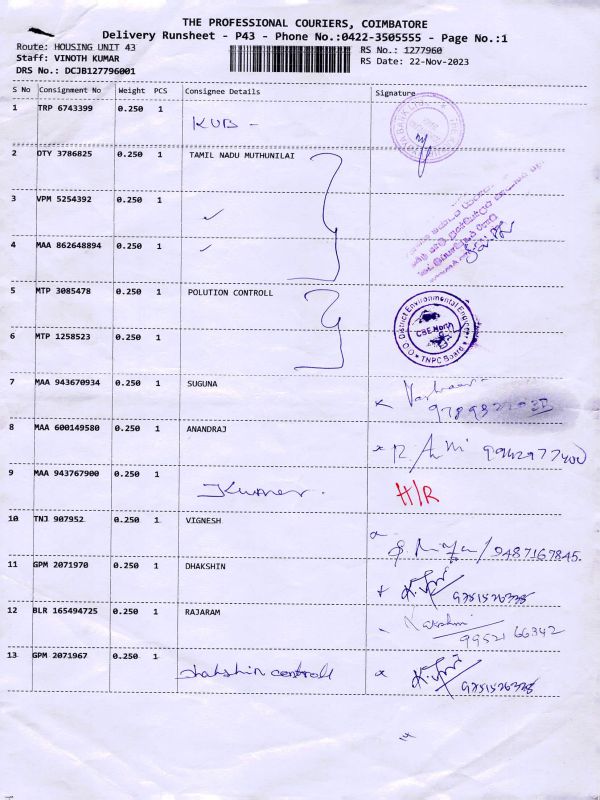 THE PROFESSIONAL COURIERS, COIMBATORE
Delivery Runsheet - P43 - Phone No.:0422-3505555 - Page No.:1
Route: HOUSING UNIT 43
RS No.: 1277960
Staff: VINOTH KUMAR
RS Date: 22-Nov-2023
DRS No.: DCJB127796001
S No Consignment No Weight PCS Consignee Details Signature
1 TRP 6743399 0.250 1 KUB -
2 OTY 3786825 0.250 1 TAMIL NADU MUTHUNILAI
3 VPM 5254392 0.250 1
4 MAA 862648894 0.250 1
5 MTP 3085478 0.250 1 POLUTION CONTROLL
District Environmental Engineer
CBE North
TNPC Board
6 MTP 1258523 0.250 1
7 MAA 943670934 0.250 1 SUGUNA
8 MAA 600149580 0.250 1 ANANDRAJ 9942977400
9 MAA 943767900 0.250 1 Kumar. H/R
10 TNJ 907952 0.250 1 VIGNESH 9487167845.
11 GPM 2071970 0.250 1 DHAKSHIN
12 BLR 165494725 0.250 1 RAJARAM Lakshmi
9952166342
13 GPM 2071967 0.250 1 dhakshin controll